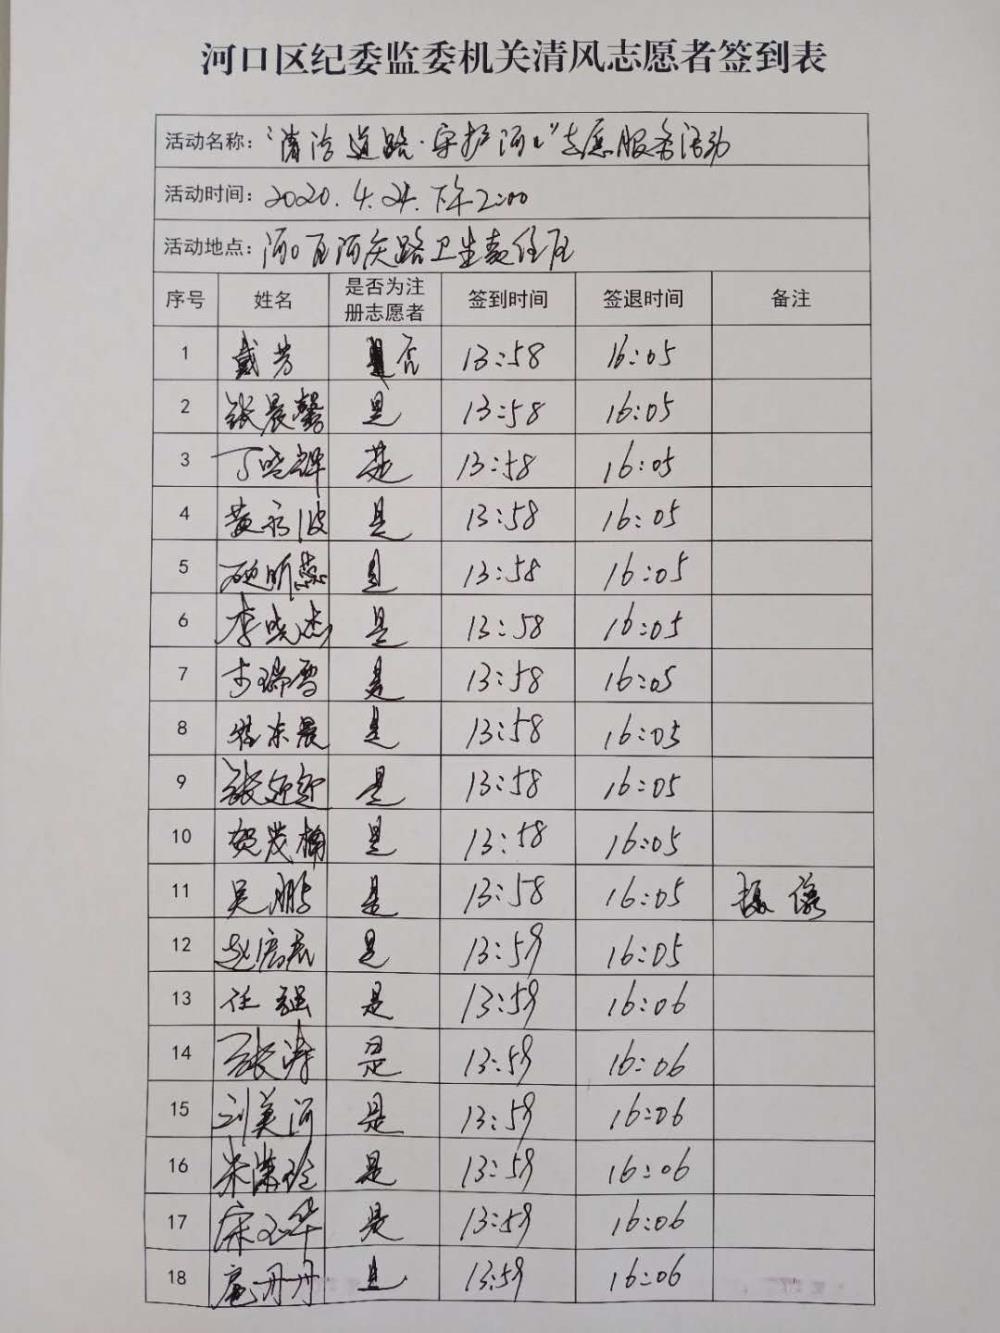 河口区纪委监委机关清风志愿者签到表
活动名称：“清洁道路·守护河口”志愿服务活动
活动时间：2020.4.24.下午2:00
活动地点：河口区河庆路卫生责任区
序号 姓名 是否为注册志愿者 签到时间 签退时间 备注
1 戴芳 否 13:58 16:05
2 张晨馨 是 13:58 16:05
3 丁晓辉 是 13:58 16:05
4 黄永波 是 13:58 16:05
5 是 13:58 16:05
6 李晓杰 是 13:58 16:05
7 瑞雪 是 13:58 16:05
8 东晨 是 13:58 16:05
9 张迎迎 是 13:58 16:05
10 贺茂楠 是 13:58 16:05
11 吴鹏 是 13:58 16:05 摄像
12 赵 是 13:59 16:05
13 任强 是 13:59 16:06
14 张涛 是 13:59 16:06
15 刘美河 是 13:59 16:06
16 是 13:59 16:06
17 宋玉华 是 13:59 16:06
18 丹丹 是 13:59 16:06